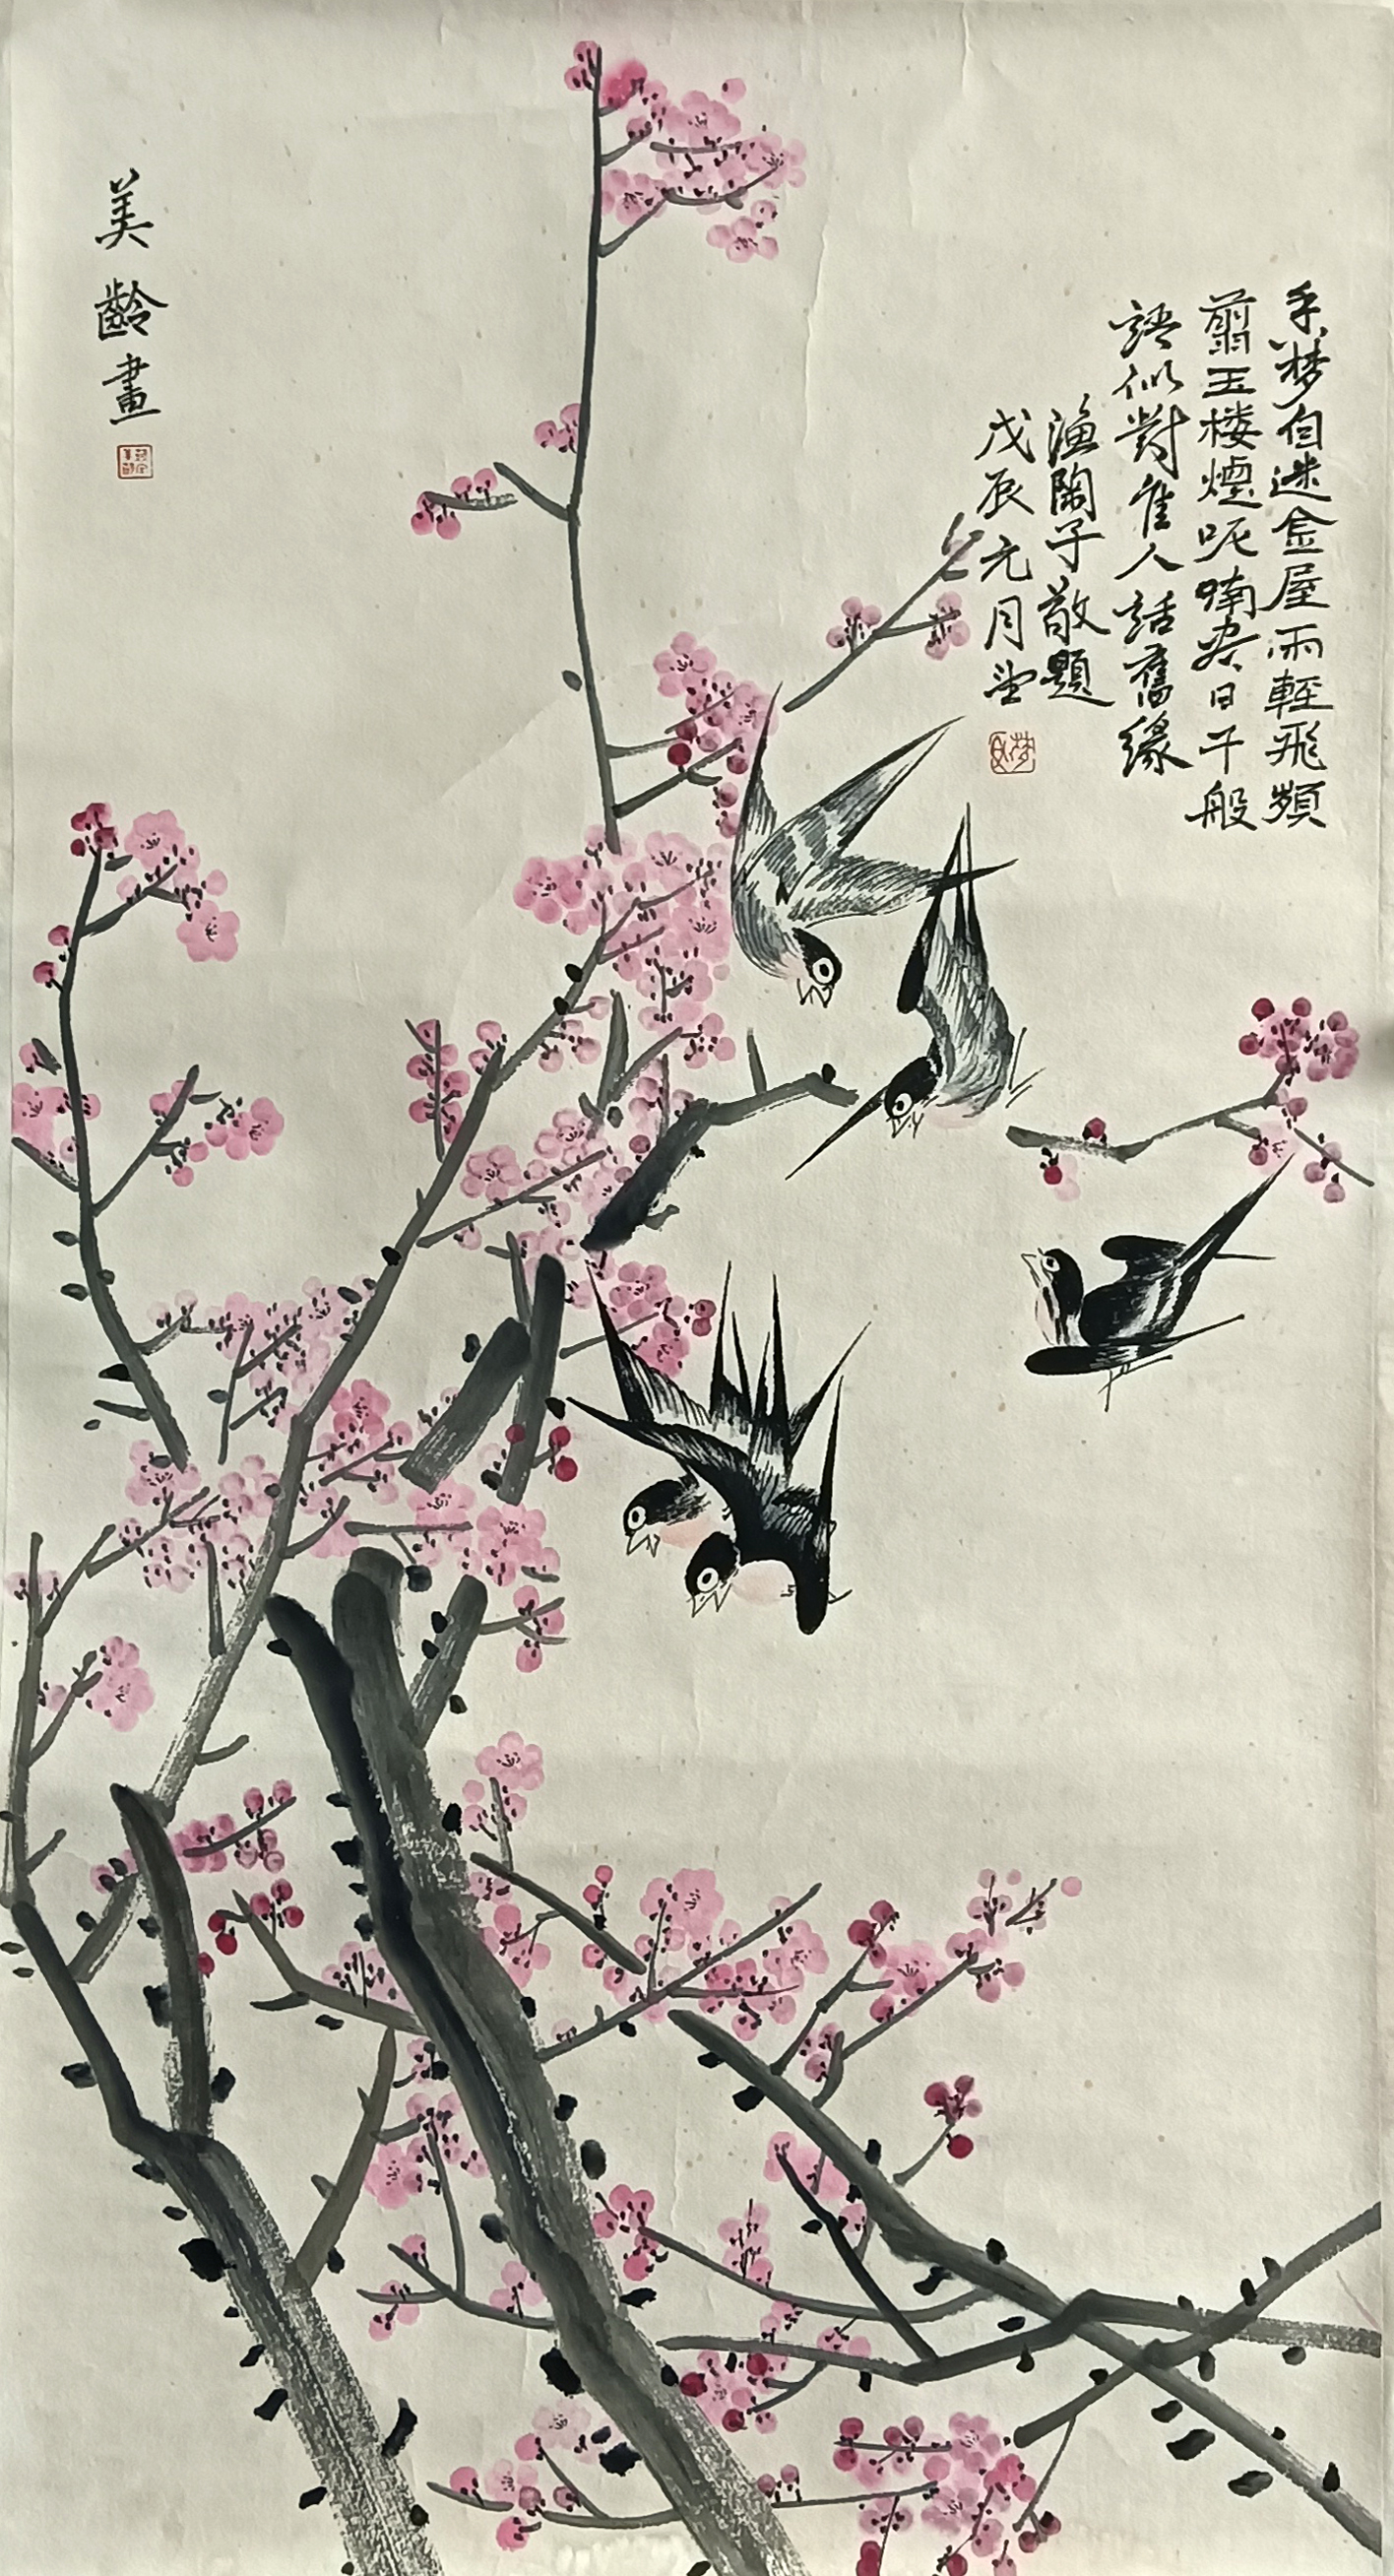 香梦自迷金屋雨輕飛頻
翦玉楼煙呢喃盡日千般
語似對隹人話舊緣
漁陶子敬題
戊辰元月
美齡畫